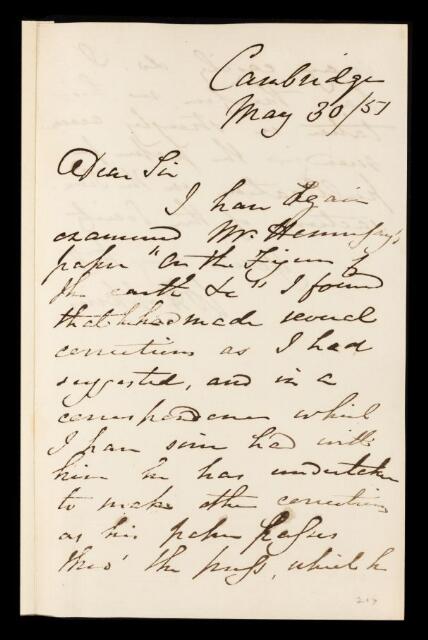 Cambridge
May 30/51
Dear Sir
I have again
examined Mr. Hennessy's
paper "On the Figure of
the earth &c" I found
that he had made several
corrections as I had
suggested, and in a
correspondence which
I have since had with
him he has undertaken
to make other corrections
as his paper passes
thro' the press, which he